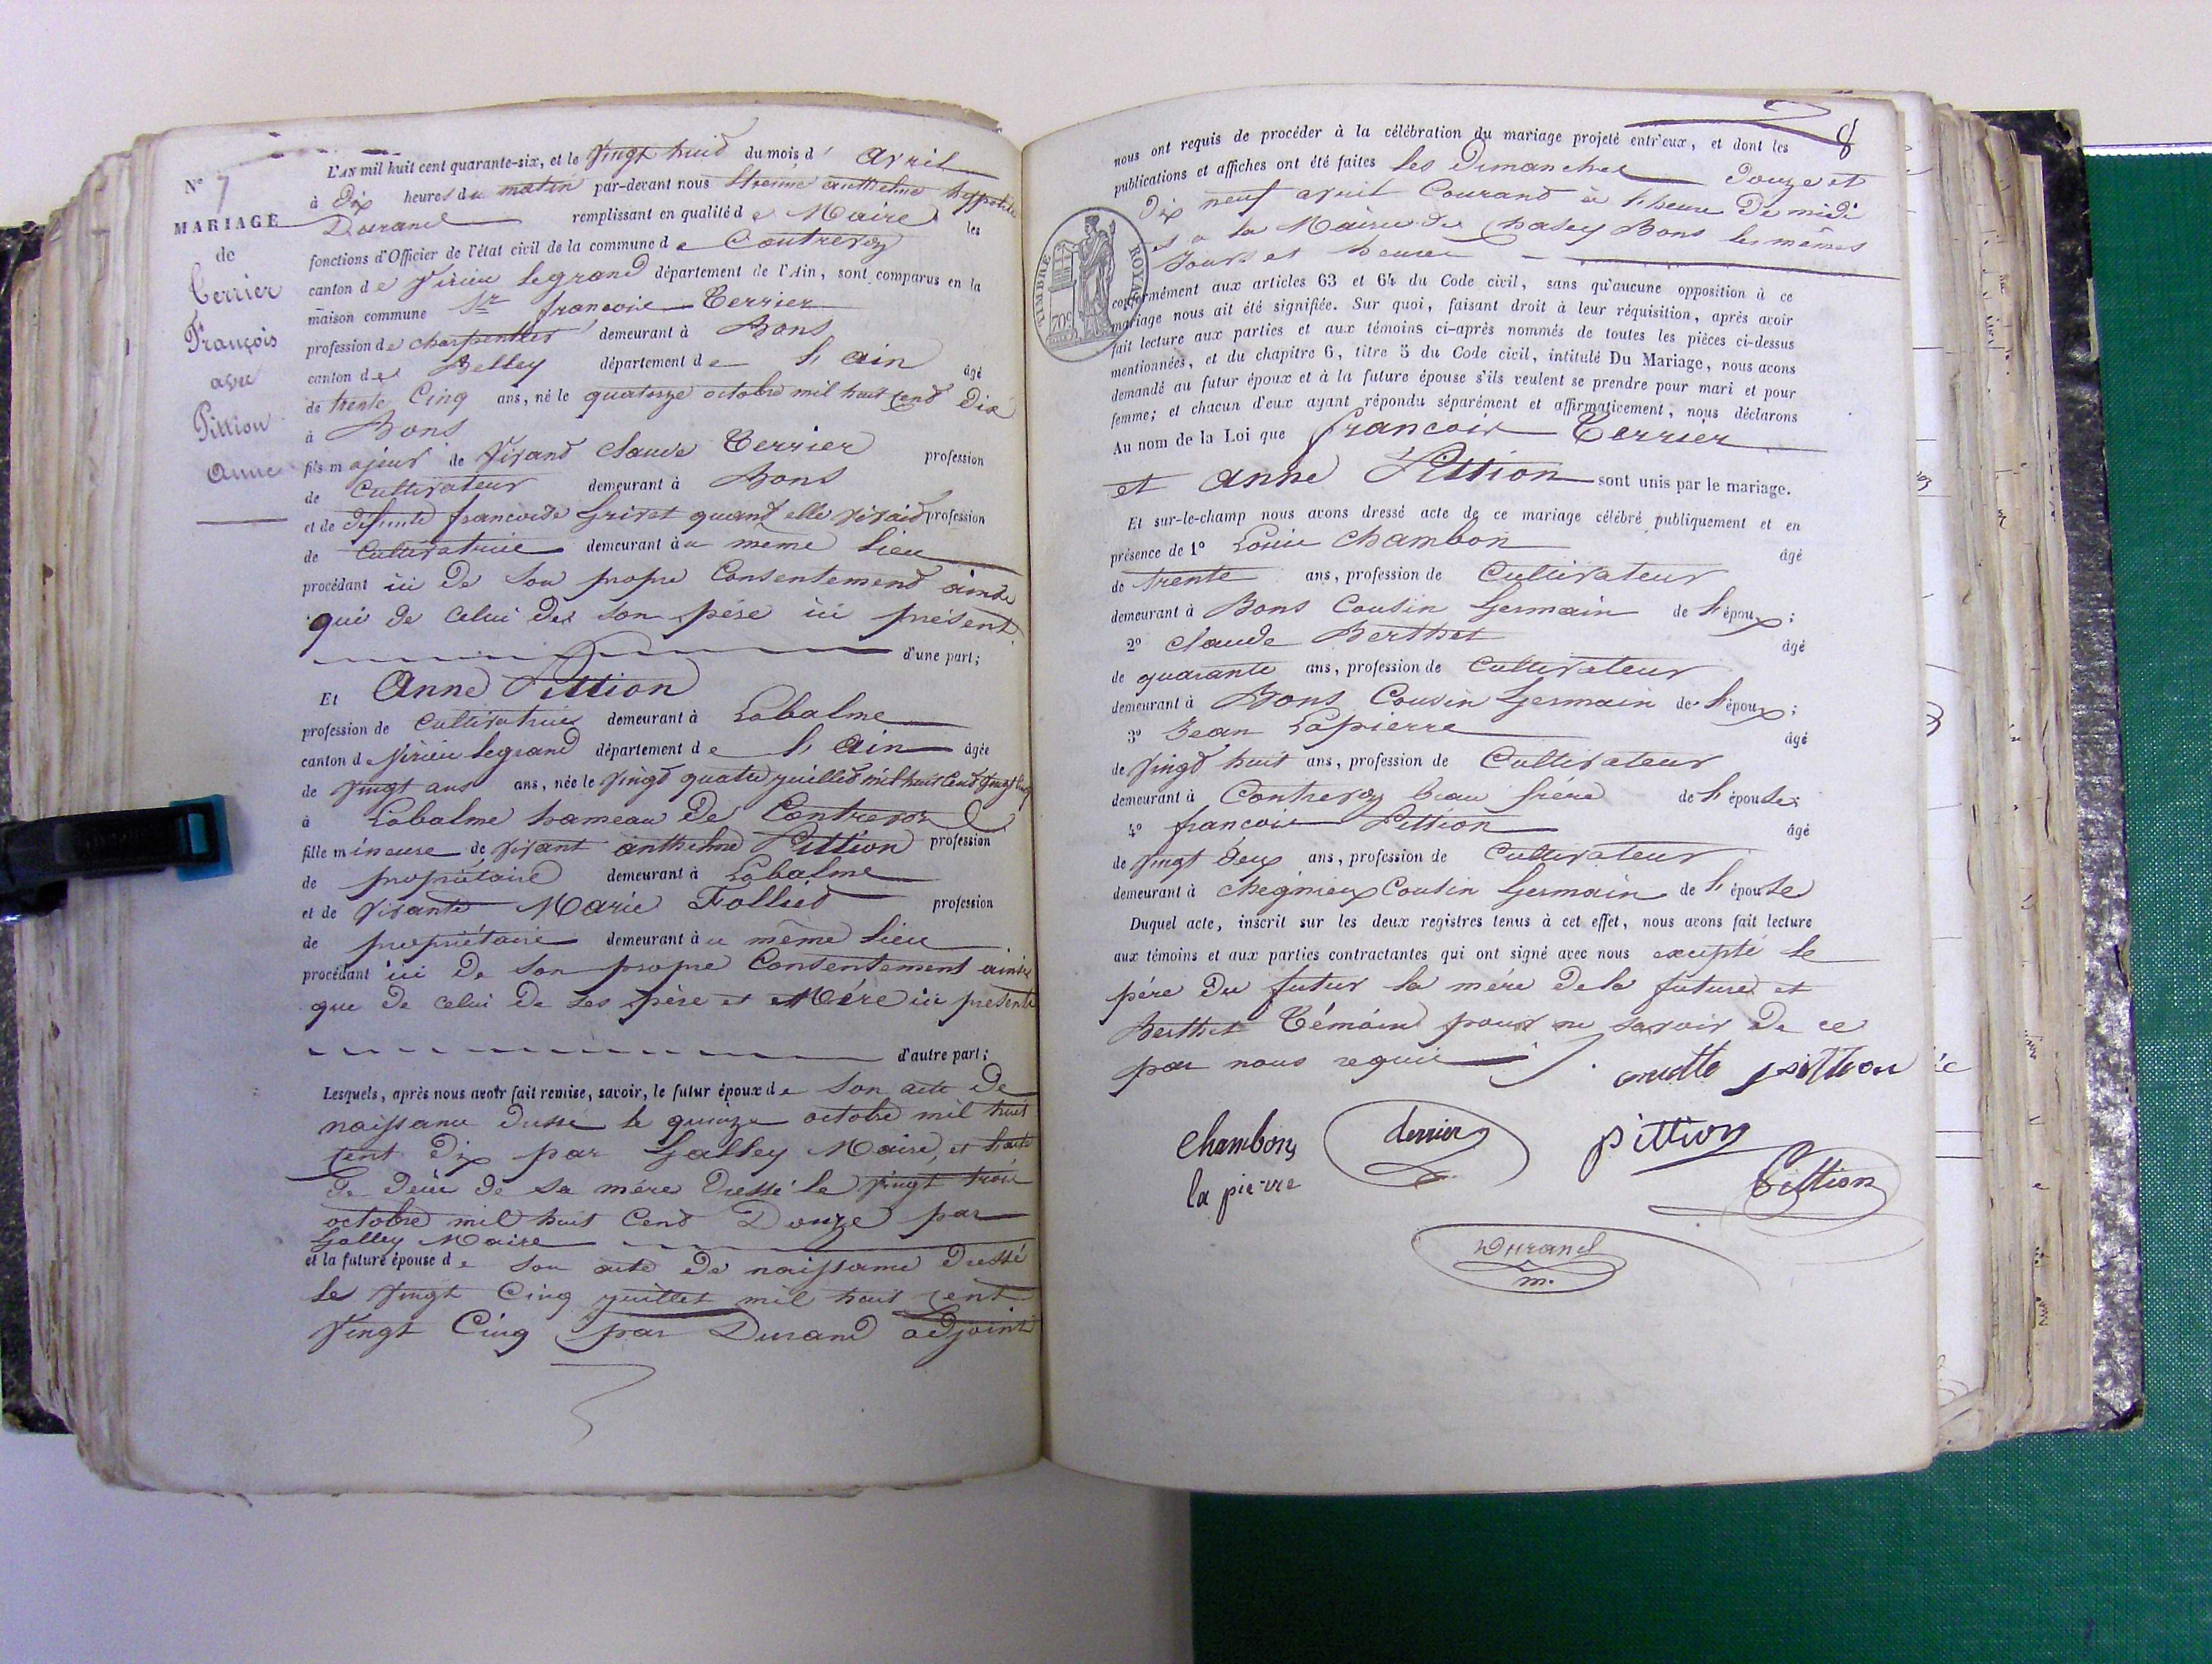 N° 7
MARIAGE
de
Terrier
François
avec
Pittion
Anne
L'AN mil huit cent quarante-six, et le Vingt huit du mois d' avril
à Dix heures du matin par-devant nous Etienne anthelme hyppolite
Durand remplissant en qualité de Maire les
fonctions d'Officier de l'état civil de la commune de Contrevoz
canton de Virieu legrand département de l'Ain, sont comparus en la
maison commune Sr francois Terrier
profession de charpentier demeurant à Bons
canton de Belley département de l'ain âgé
de trente Cinq ans, né le quatorze octobre mil huit cent Dix
à Bons
fils majeur de Vivant Claude Terrier profession
de Cultivateur demeurant à Bons
et de defunte francoise Grivet quand elle vivait profession
de Cultivatrice demeurant au meme lieu
procédant ici de son propre Consentement ainsi
que de celui de son père ici présent
d'une part;
Et Anne Pittion
profession de Cultivatrice demeurant à Labalme
canton de Virieu legrand département de l'ain âgée
de Vingt ans ans, née le Vingt quatre juillet mil huit Cent Vingt Cinq
à Labalme hameau De Contrevoz
fille mineure de vivant anthelme Pittion profession
de propriétaire demeurant à Labalme
et de Vivante Marie Folliet profession
de propriétaire demeurant au même lieu
procédant ici de son propre Consentement ainsi
que de celui de ses père et Mère ici présents
d'autre part;
Lesquels, après nous avoir fait remise, savoir, le futur époux de son acte de
naissance dressé le quinze octobre mil huit
cent Dix par Galley Maire, et l'acte
De décès de sa mère Dressé le Vingt trois
octobre mil huit Cent Douze par
Galley Maire
et la future épouse de son acte de naissance Dressé
le Vingt Cinq juillet mil huit cent
Vingt Cinq par Durand adjoint
8
nous ont requis de procéder à la célébration du mariage projeté entr'eux, et dont les
publications et affiches ont été faites les Dimanches Douze et
Dix neuf avril Courant à l'heure De midi
et a la Mairie de Chasey Bons les mêmes
Jours et heures
TIMBRE ROYAL
70c
conformément aux articles 63 et 64 du Code civil, sans qu'aucune opposition à ce
mariage nous ait été signifiée. Sur quoi, faisant droit à leur réquisition, après avoir
fait lecture aux parties et aux témoins ci-après nommés de toutes les pièces ci-dessus
mentionnées, et du chapitre 6, titre 5 du Code civil, intitulé Du Mariage, nous avons
demandé au futur époux et à la future épouse s'ils veulent se prendre pour mari et pour
femme; et chacun d'eux ayant répondu séparément et affirmativement, nous déclarons
Au nom de la Loi que francois Terrier
et Anne Pittion sont unis par le mariage.
Et sur-le-champ nous avons dressé acte de ce mariage célébré publiquement et en
présence de 1° Louis Chambon âgé
de trente ans, profession de Cultivateur
demeurant à Bons Cousin Germain de l'époux;
2° Claude Berthet âgé
de quarante ans, profession de Cultivateur
demeurant à Bons Cousin Germain de l'époux;
3° Jean Lapierre âgé
de Vingt huit ans, profession de Cultivateur
demeurant à Contrevoz beau frère de l'épouse;
4° francois Pittion âgé
de Vingt Deux ans, profession de Cultivateur
demeurant à Chegnieux Cousin Germain de l'épouse
Duquel acte, inscrit sur les deux registres tenus à cet effet, nous avons fait lecture
aux témoins et aux parties contractantes qui ont signé avec nous excepté le
père du futur la mère De la future et
Berthet Témoin pour ne savoir De ce
par nous requis
pittion
Chambon
terrier
pittion
la pierre
Pittion
Durand
m.